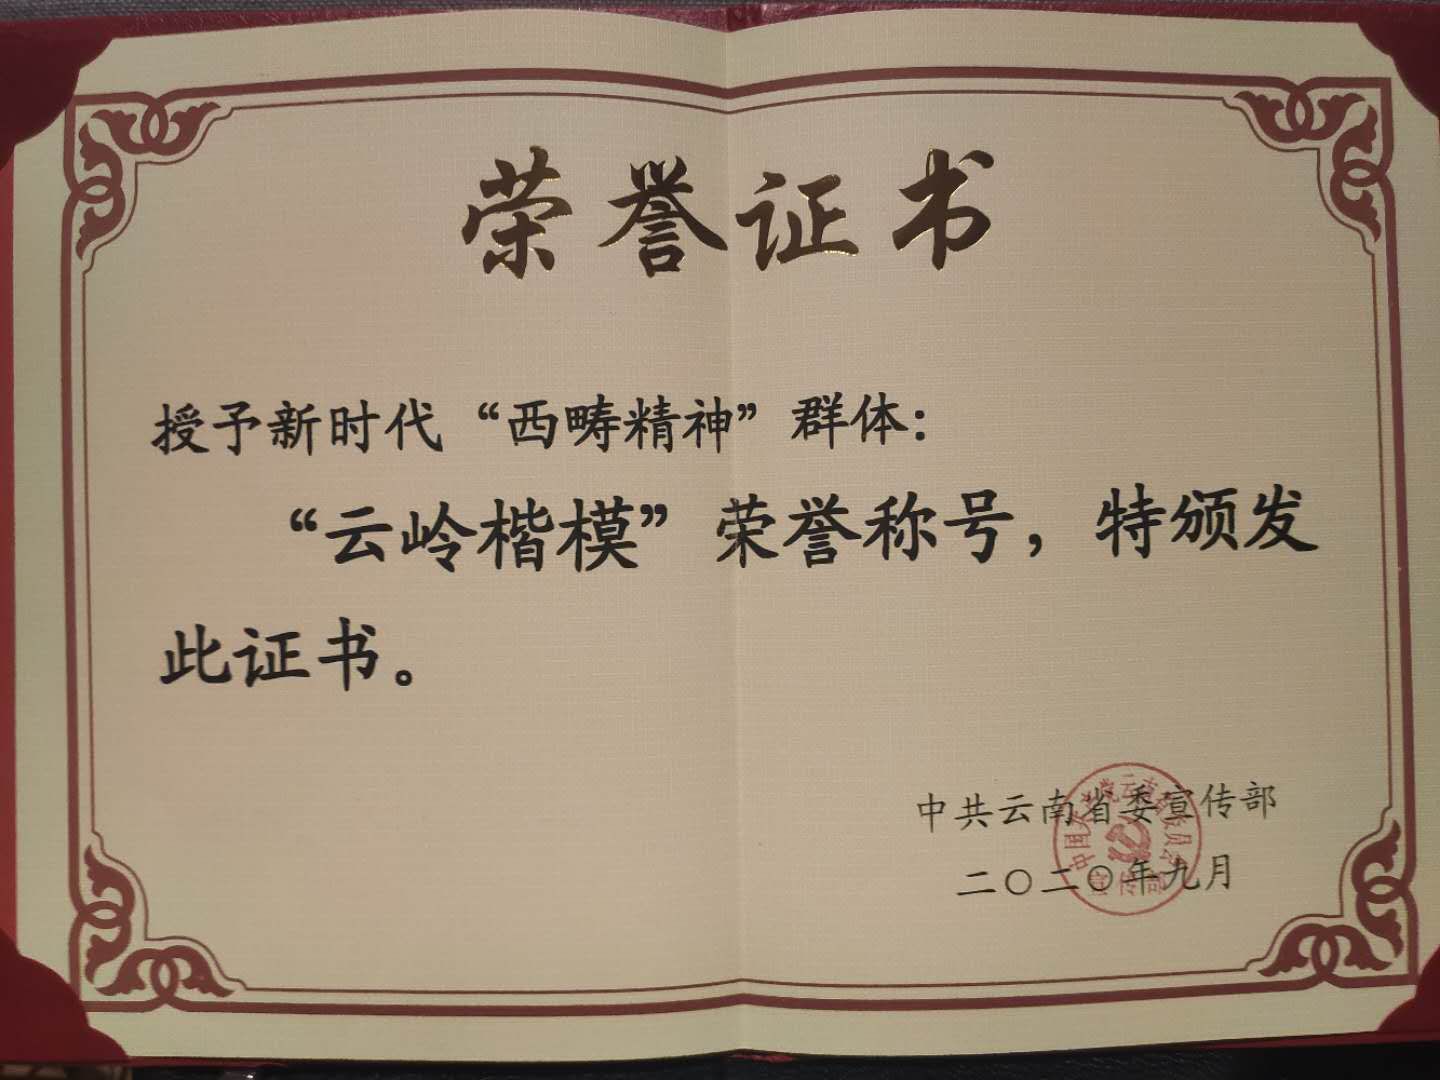 荣誉证书
授予新时代“西畴精神”群体：
“云岭楷模”荣誉称号，特颁发
此证书。
中共云南省委宣传部
二〇二〇年九月